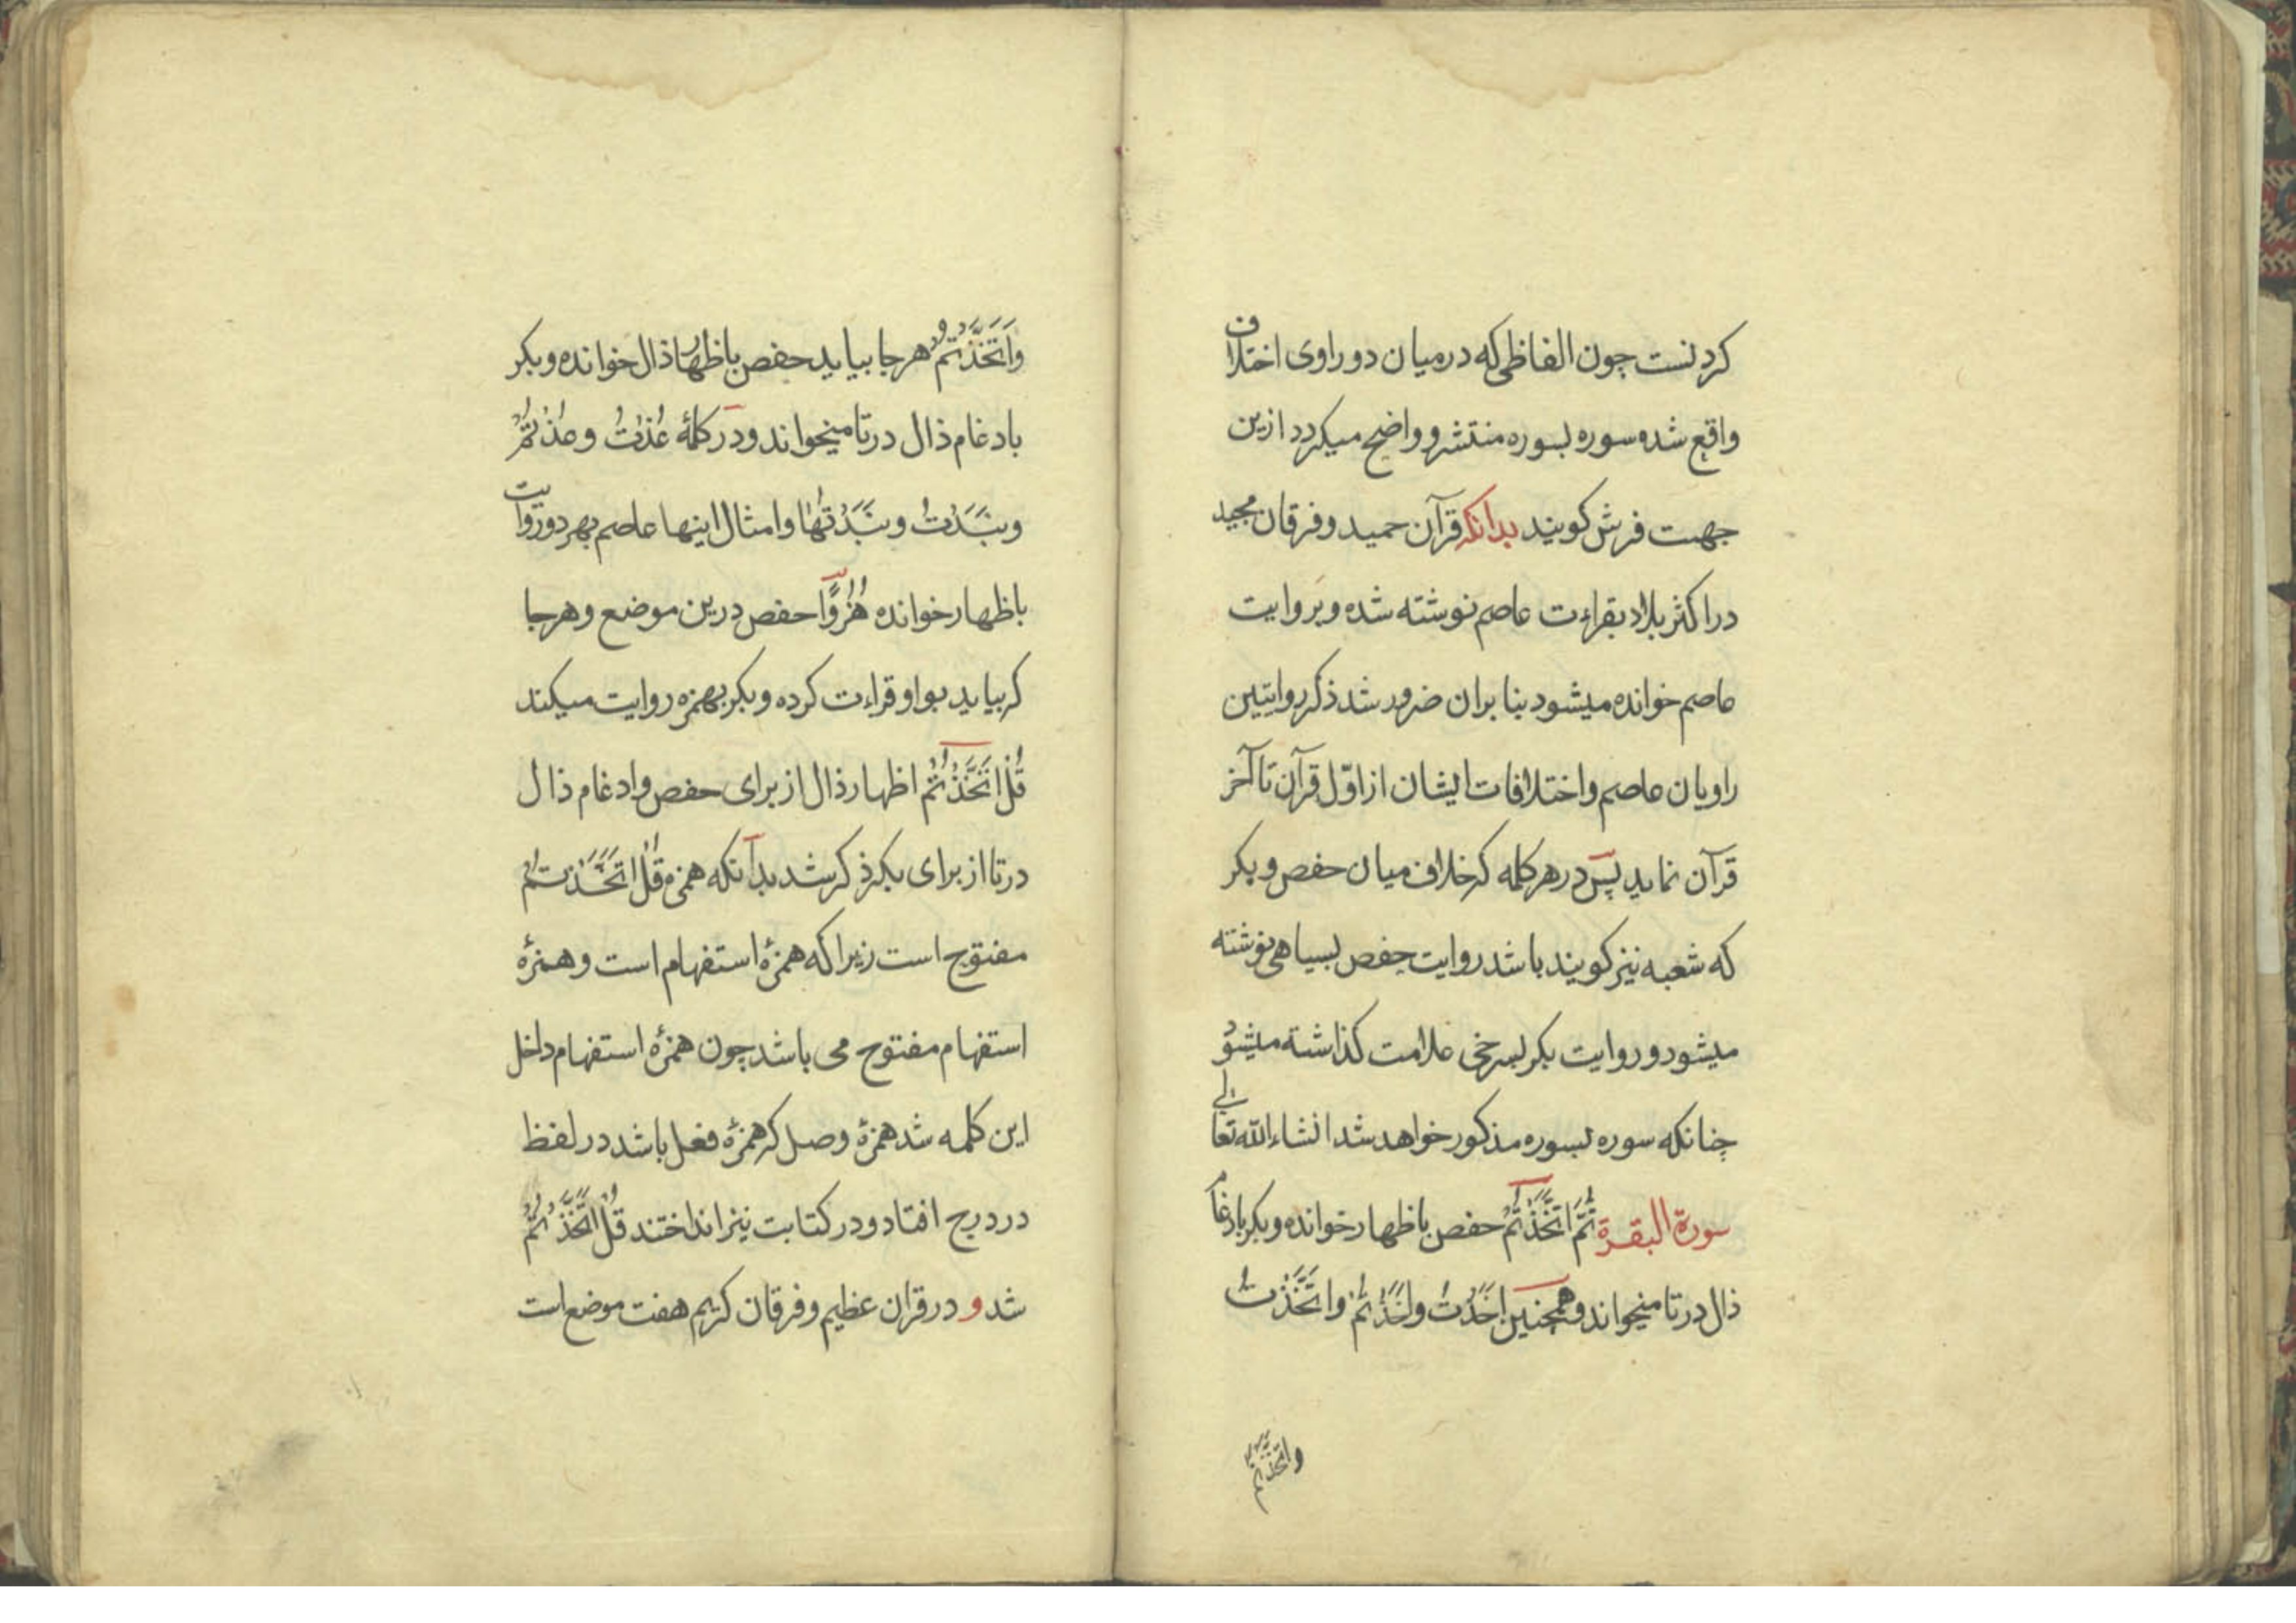 کردنست چون الفاظی که در میان دو راوی اختلاف
واقع شده سوره بسوره منتشر و واضح میکردد ازین
جهت فرش کویند بدانکه قرآن حمید و فرقان مجید
در اکثر بلاد بقراءت عاصم نوشته شده و بروایت
عاصم خوانده میشود بنا بران ضرور شد ذکر روایتین
راویان عاصم و اختلافات ایشان از اوّل قرآن تا آخر
قرآن نماید پس در هر کلمه که خلاف میان حفص و بکر
که شعبه نیز کویند باشد روایت حفص بسیاهی نوشته
میشود و روایت بکر بسرخی علامت کذاشته میشود
چنانکه سوره بسوره مذکور خواهد شد انشاءالله تعالی
سورة البقرة ثُمَّ اتَّخَذْتُمْ حفص باظهار خوانده و بکر بادغام
ذال در تا میخواند و همچنین اَخَذْتُ و اَخَذْتُمْ و اتَّخَذْتُ
واتخذتم
وَاتَّخَذْتُمْ هر جا بیاید حفص باظهار ذال خوانده و بکر
بادغام ذال در تا میخواند و در کلمهٔ عُذْتُ و عُذْتُمْ
و نَبَذْتُ و نَبَذْتُهَا و امثال اینها عاصم بهر دو روایت
باظهار خوانده هُزُوًا حفص درین موضع و هر جا
که بیاید بواو قراءت کرده و بکر بهمزه روایت میکند
قُلْ اَتَّخَذْتُمْ اظهار ذال از برای حفص و ادغام ذال
در تا از برای بکر ذکر شد بدآنکه همزه قُلْ اَتَّخَذْتُمْ
مفتوح است زیرا که همزهٔ استفهام است و همزهٔ
استفهام مفتوح می باشد چون همزهٔ استفهام داخل
این کلمه شد همزهٔ وصل که همزهٔ فعل باشد در لفظ
در درج افتاد و در کتابت نیز انداختند قُلْ اَتَّخَذْتُمْ
شد و در قران عظیم و فرقان کریم هفت موضع است